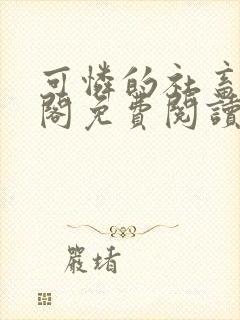 可憐的社畜
閣免費閱讀
嚴堵